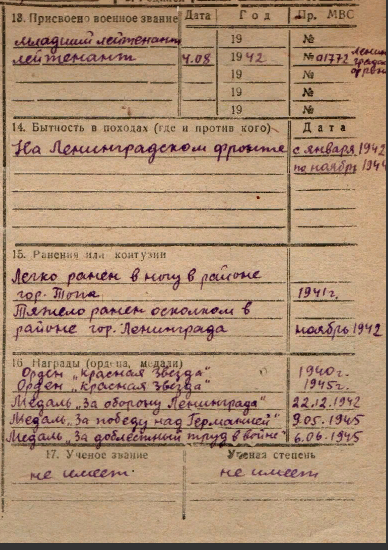 13. Присвоено военное звание Дата Год Пр. МВС
младший лейтенант 19 №
лейтенант 4.08 1942 №01772 Ленин
град
фрон
19 №
19 №
19 №
14. Бытность в походах (где и против кого) Дата
На Ленинградском фронте с января 1942
по ноябрь 194
15. Ранения или контузии
Легко ранен в ногу в районе
гор. 1941г.
Тяжело ранен осколком в
районе гор. Ленинграда ноябрь 1942
16. Награды (ордена, медали)
Орден „Красная Звезда" 1940г.
Орден „Красная Звезда" 1945г.
Медаль „За оборону Ленинграда" 22.12.1942
Медаль „За победу над Германией" 9.05.1945
Медаль „За доблестный труд в войне" 6.06.1945
17. Ученое звание Ученая степень
не имеет. не имеет